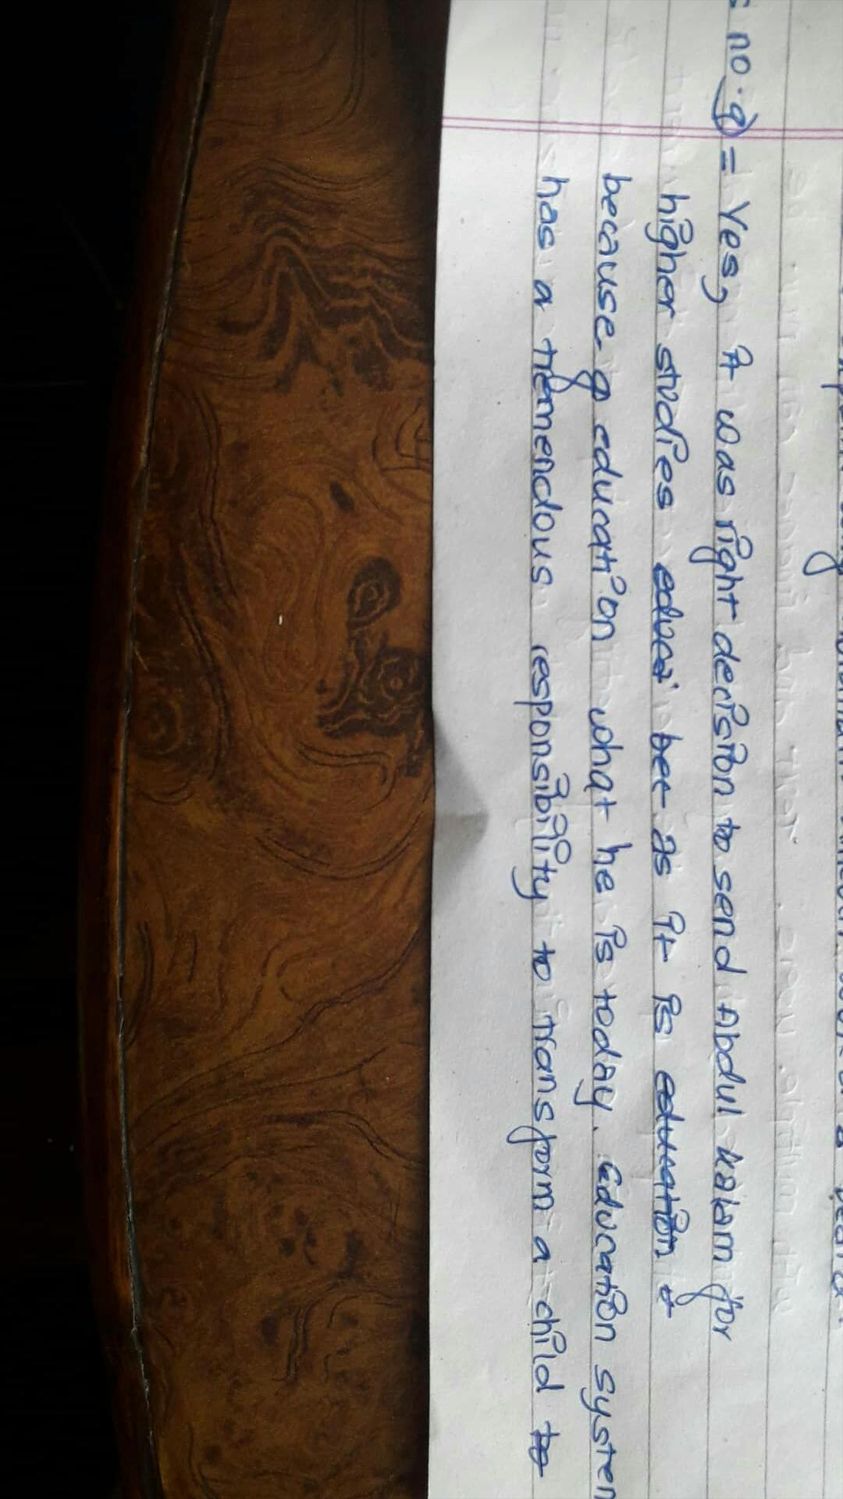 no. 9) = Yes, it was right decision to send Abdul Kalam for
higher studies educat bec as it is education t
because of education what he is today. Education system
has a tremendous responsibility to transform a child to